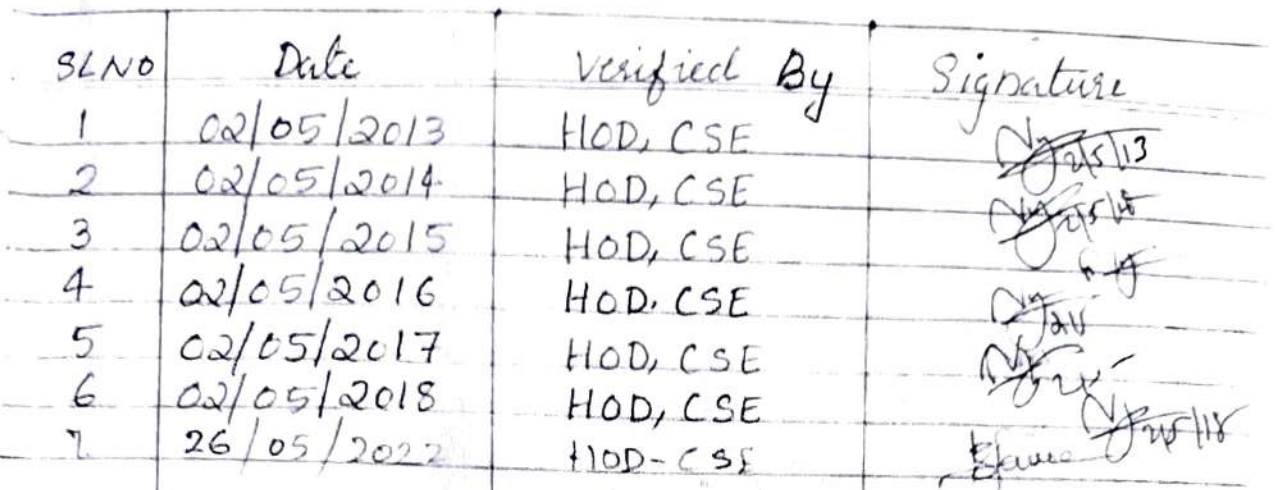 SLNO Date Verified By Signature
1 02/05/2013 HOD, CSE 2/5/13
2 02/05/2014 HOD, CSE
3 02/05/2015 HOD, CSE
4 02/05/2016 HOD. CSE
5 02/05/2017 HOD, CSE
6 02/05/2018 HOD, CSE
7 26/05/2022 HOD-CSE